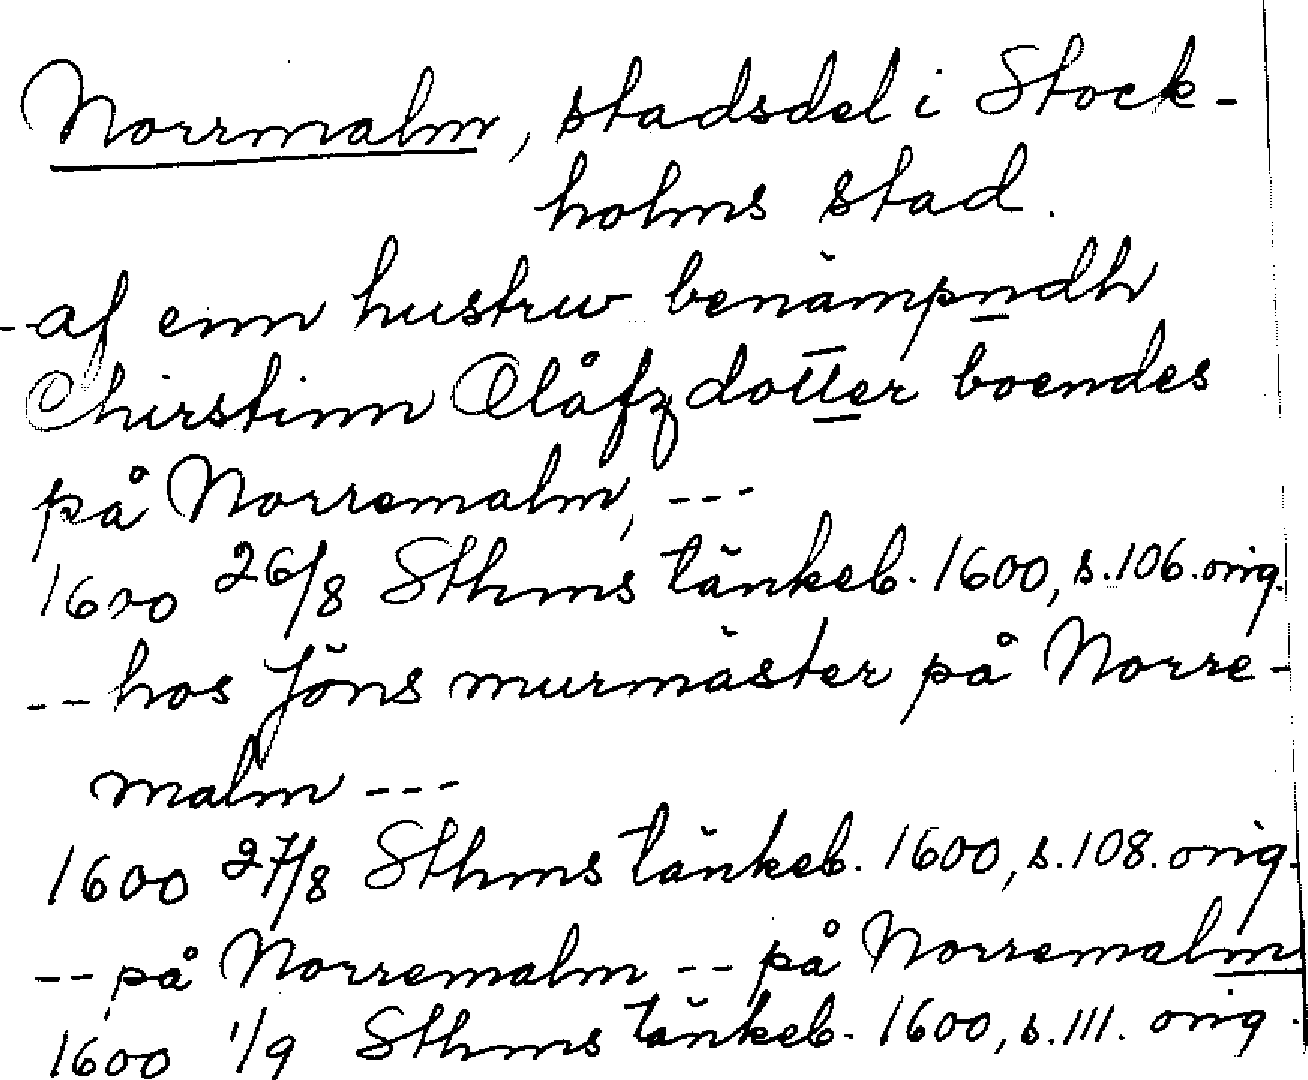 Norrmalm, stadsdel i Stock-
holms stad.
- af enn hustrw benämpndh
Chirstinn Olåfz dotter boendes
på Norremalm, ---
1600 26/8 Sthms tänkeb. 1600, s. 106. orig.
-- hos Jöns murmäster på Norre-
malm ---
1600 27/8 Sthms tänkeb. 1600, s. 108. orig.
-- på Norremalm -- på Norremalm
1600 1/9 Sthms tänkeb. 1600, s. 111. orig.